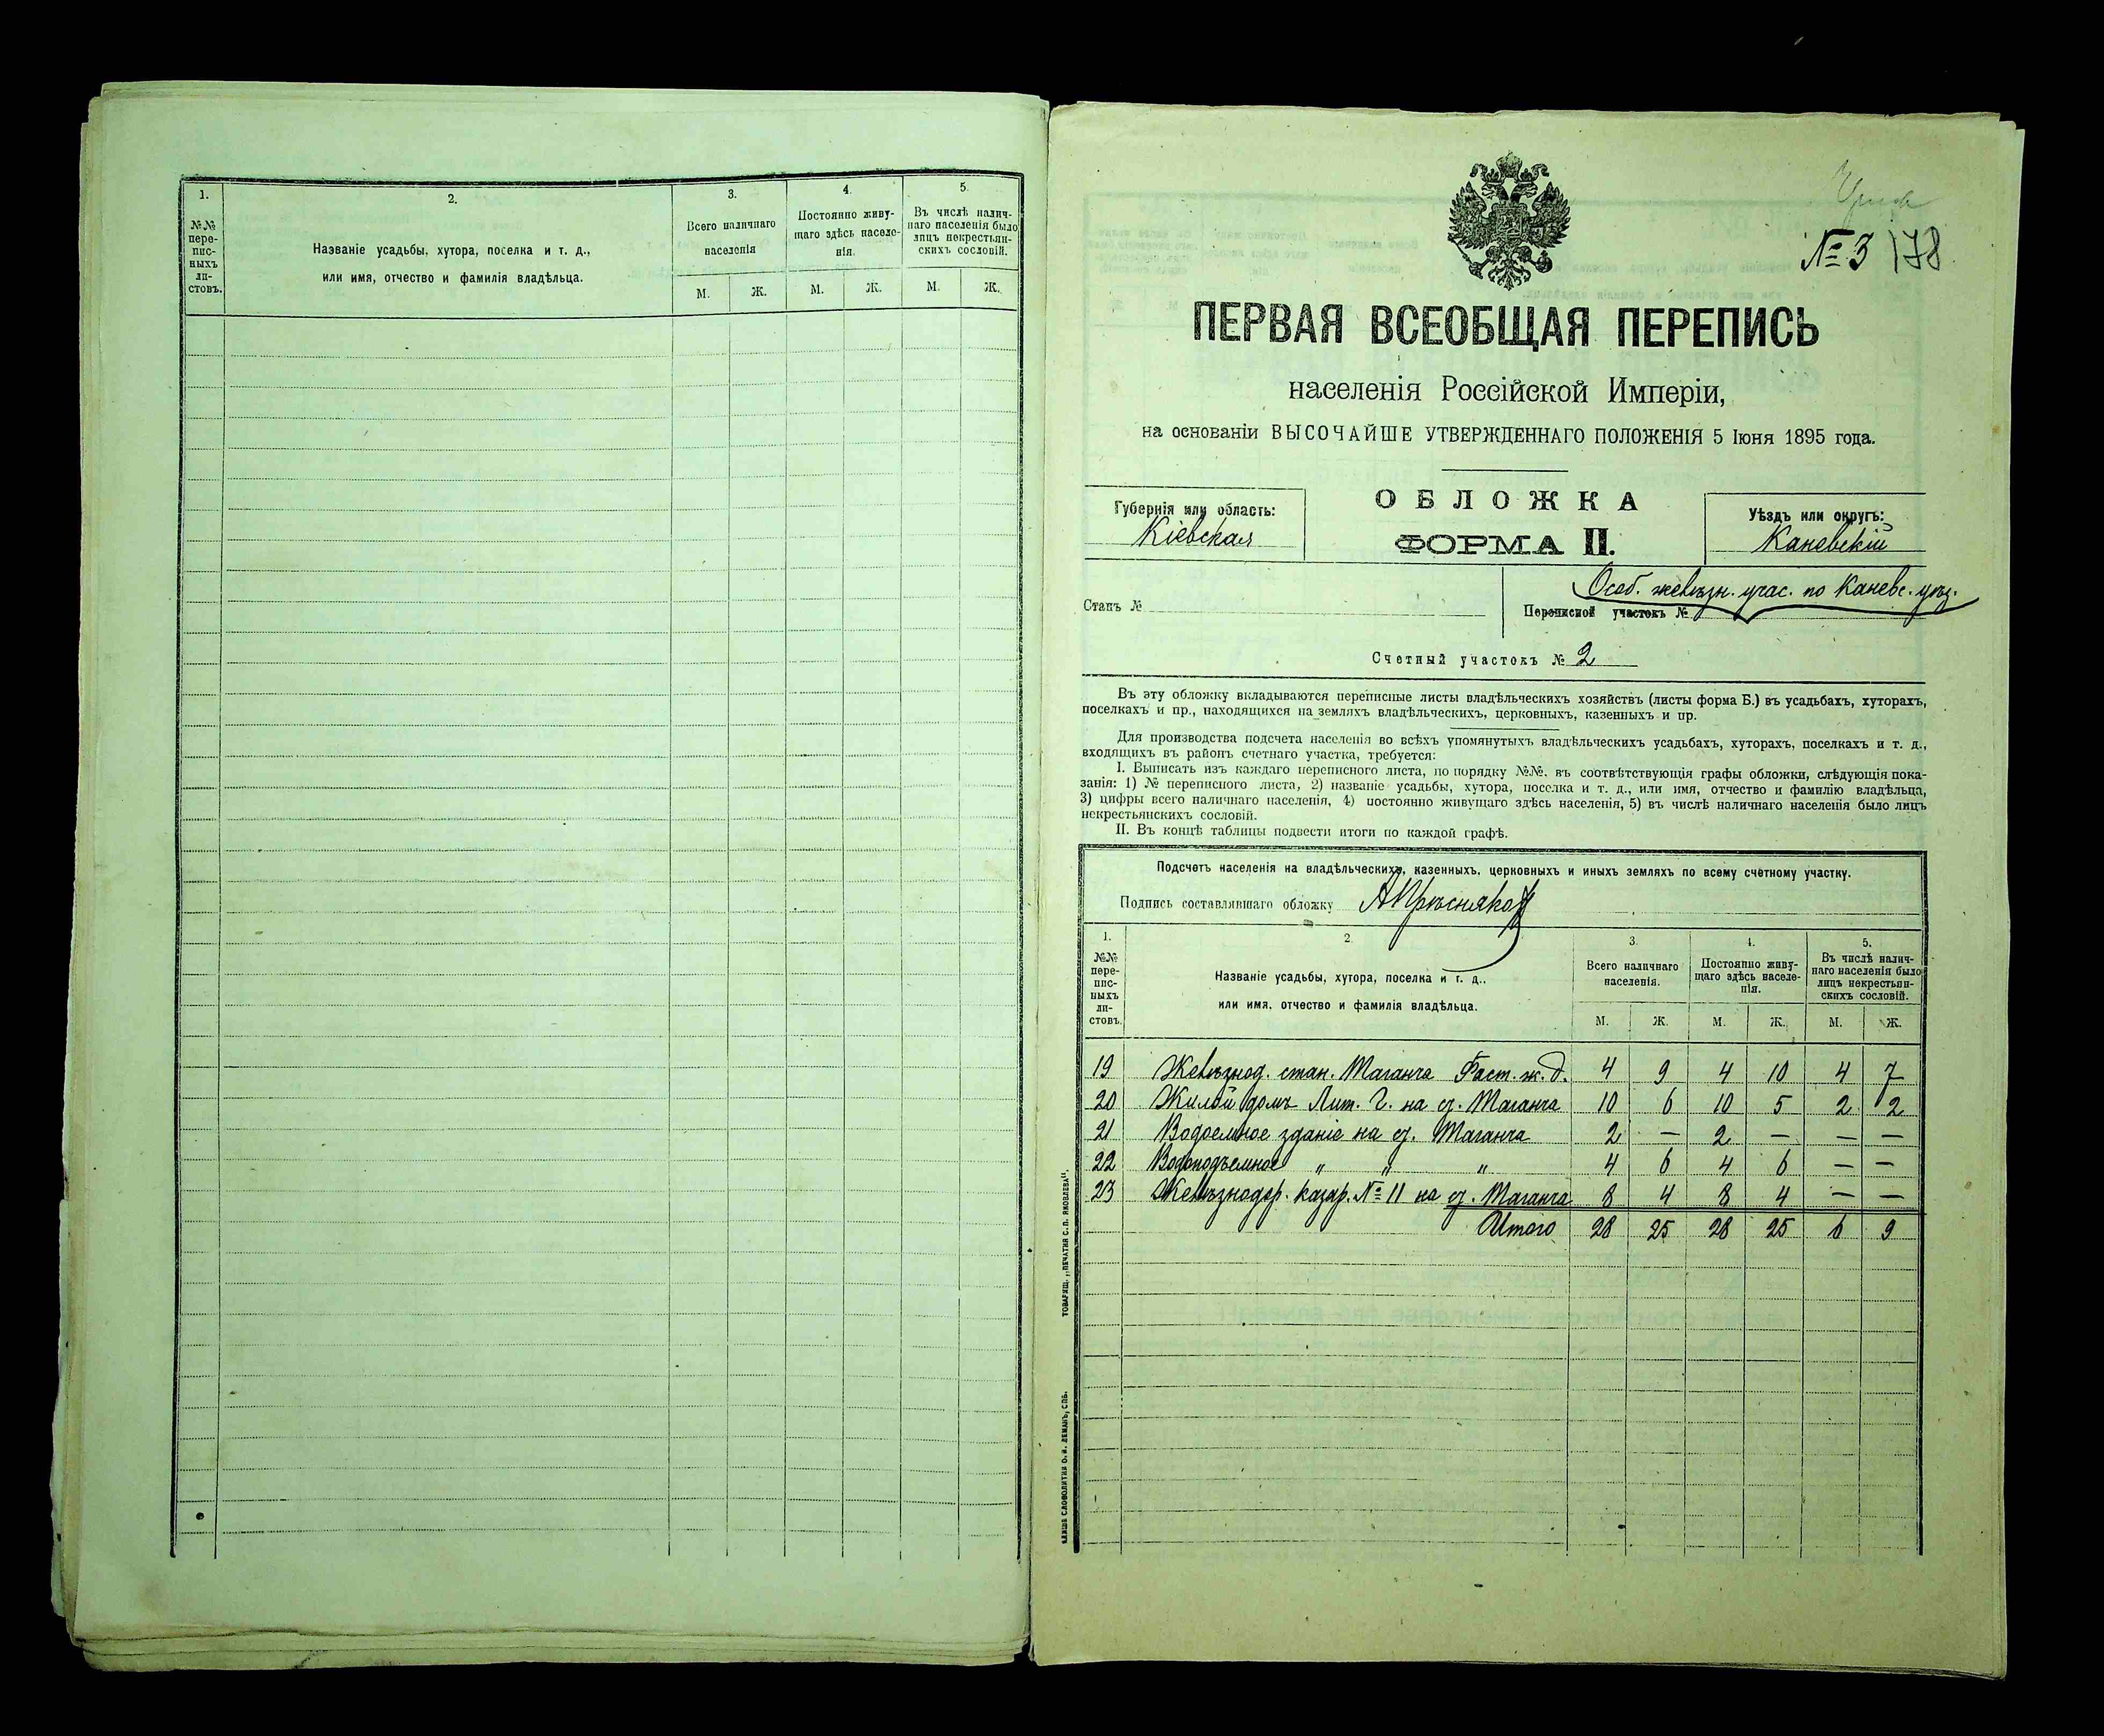 1.
2.
3.
4.
5.
№№
пере-
пис-
ныхъ
ли-
стовъ.
Названіе усадьбы, хутора, поселка и т. д.,
или имя, отчество и фамилія владѣльца.
Всего наличнаго
населенія
Постоянно живу-
щаго здѣсь населе-
нія.
Въ числѣ налич-
наго населенія было
лицъ некрестьян-
скихъ сословій.
М. Ж. М. Ж. М. Ж.
№ 3 178
ПЕРВАЯ ВСЕОБЩАЯ ПЕРЕПИСЬ
населенія Россійской Имперіи,
на основаніи ВЫСОЧАЙШЕ УТВЕРЖДЕННАГО ПОЛОЖЕНІЯ 5 Іюня 1895 года.
ОБЛОЖКА
ФОРМА II.
Губернія или область:
Кіевская
Уѣздъ или округъ:
Каневскій
Станъ №
Особ. желѣзн. учас. по Каневс. уѣз.
Переписной участокъ №
Счетный участокъ № 2
Въ эту обложку вкладываются переписные листы владѣльческихъ хозяйствъ (листы форма Б.) въ усадьбахъ, хуторахъ,
поселкахъ и пр., находящихся на земляхъ владѣльческихъ, церковныхъ, казенныхъ и пр.
Для производства подсчета населенія во всѣхъ упомянутыхъ владѣльческихъ усадьбахъ, хуторахъ, поселкахъ и т. д.,
входящихъ въ районъ счетнаго участка, требуется:
I. Выписать изъ каждаго переписного листа, по порядку №№. въ соотвѣтствующія графы обложки, слѣдующія пока-
занія: 1) № переписного листа, 2) названіе усадьбы, хутора, поселка и т. д., или имя, отчество и фамилію владѣльца,
3) цифры всего наличнаго населенія, 4) постоянно живущаго здѣсь населенія, 5) въ числѣ наличнаго населенія было лицъ
некрестьянскихъ сословій.
II. Въ концѣ таблицы подвести итоги по каждой графѣ.
Подсчетъ населенія на владѣльческихъ, казенныхъ, церковныхъ и иныхъ земляхъ по всему счетному участку.
Подпись составлявшаго обложку А Прѣсняков
1.
2.
3.
4.
5.
№№
пере-
пис-
ныхъ
ли-
стовъ.
Названіе усадьбы, хутора, поселка и т. д.,
или имя, отчество и фамилія владѣльца.
Всего наличнаго
населенія.
Постоянно живу-
щаго здѣсь населе-
нія.
Въ числѣ налич-
наго населенія было
лицъ некрестьян-
скихъ сословій.
М. Ж. М. Ж. М. Ж.
19 Желѣзнод. стан. Таганча Фаст. ж. д. 4 9 4 10 4 7
20 Жилой домъ Лит. Г. на ст. Таганча 10 6 10 5 2 2
21 Водоемное зданіе на ст. Таганча 2 — 2 — — —
22 Водоподъемное " " " 4 6 4 6 — —
23 Желѣзнодор. казар. № 11 на ст. Таганча 8 4 8 4 — —
Итого 28 25 28 25 6 9
ТОВАРИЩ. „ПЕЧАТНЯ С. П. ЯКОВЛЕВА".
КЛИШЕ СЛОВОЛИТНИ О. И. ЛЕМАНЪ, СПБ.